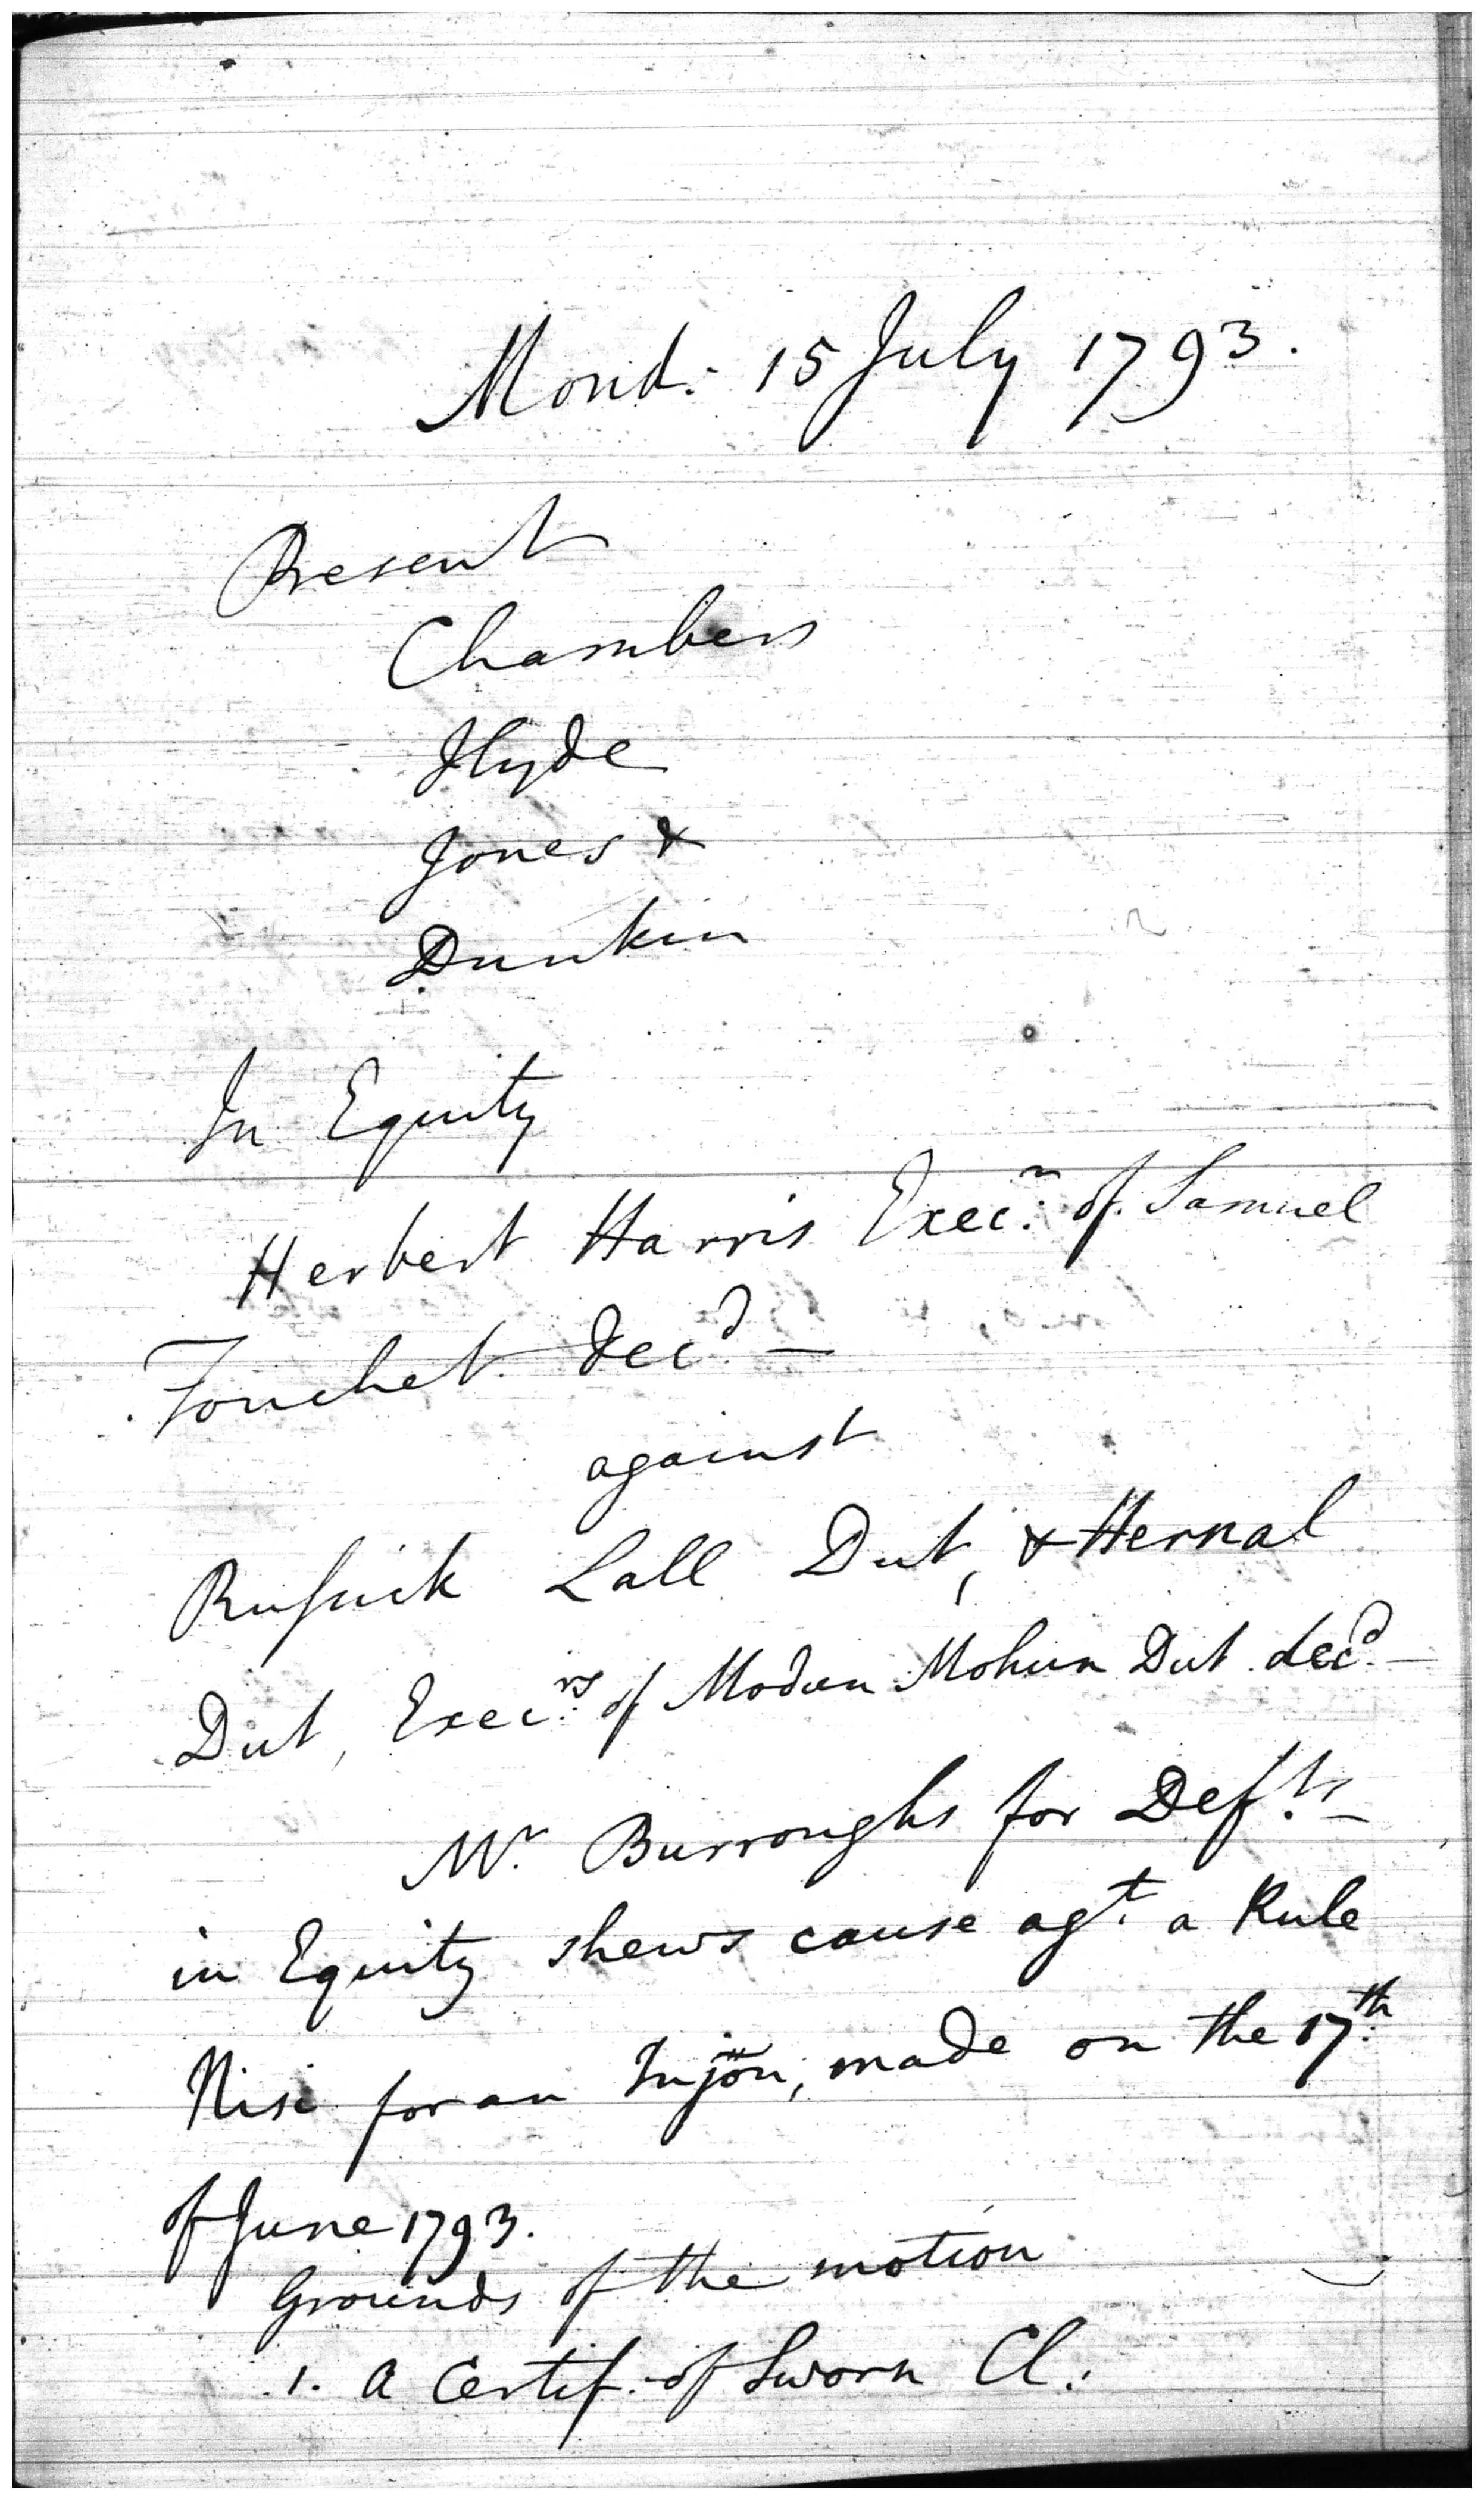 Mond. 15 July 1793.
Present
Chambers
Hyde
Jones &
Dunkin
In Equity
Herbert Harris Execr. of Samuel
Touchet decd. —
against
Russick Lall Dut, & Herral
Dut, Execrs. of Modun Mohun Dut decd. —
Mr. Burroughs for Defts. —
in Equity shews cause agt. a Rule
Nisi for an Injōn, made on the 17th.
of June 1793.
Grounds of the motion
1. A Certif. of Sworn Cl.